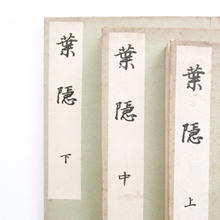 葉隠 上
葉隠 中
葉隠 下